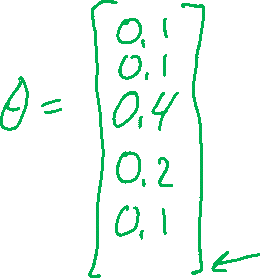 0.1
0.1
θ = 0.4
0.2
0.1